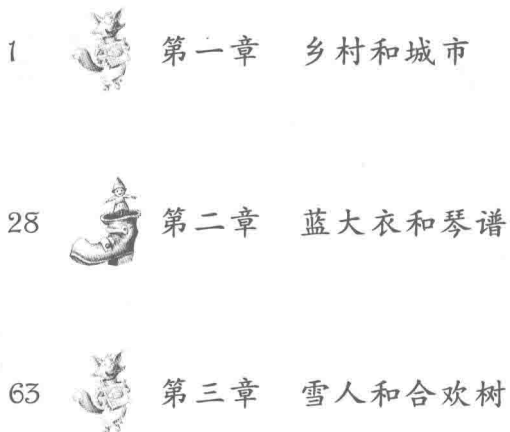 1 第一章 乡村和城市
28 第二章 蓝大衣和琴谱
63 第三章 雪人和合欢树